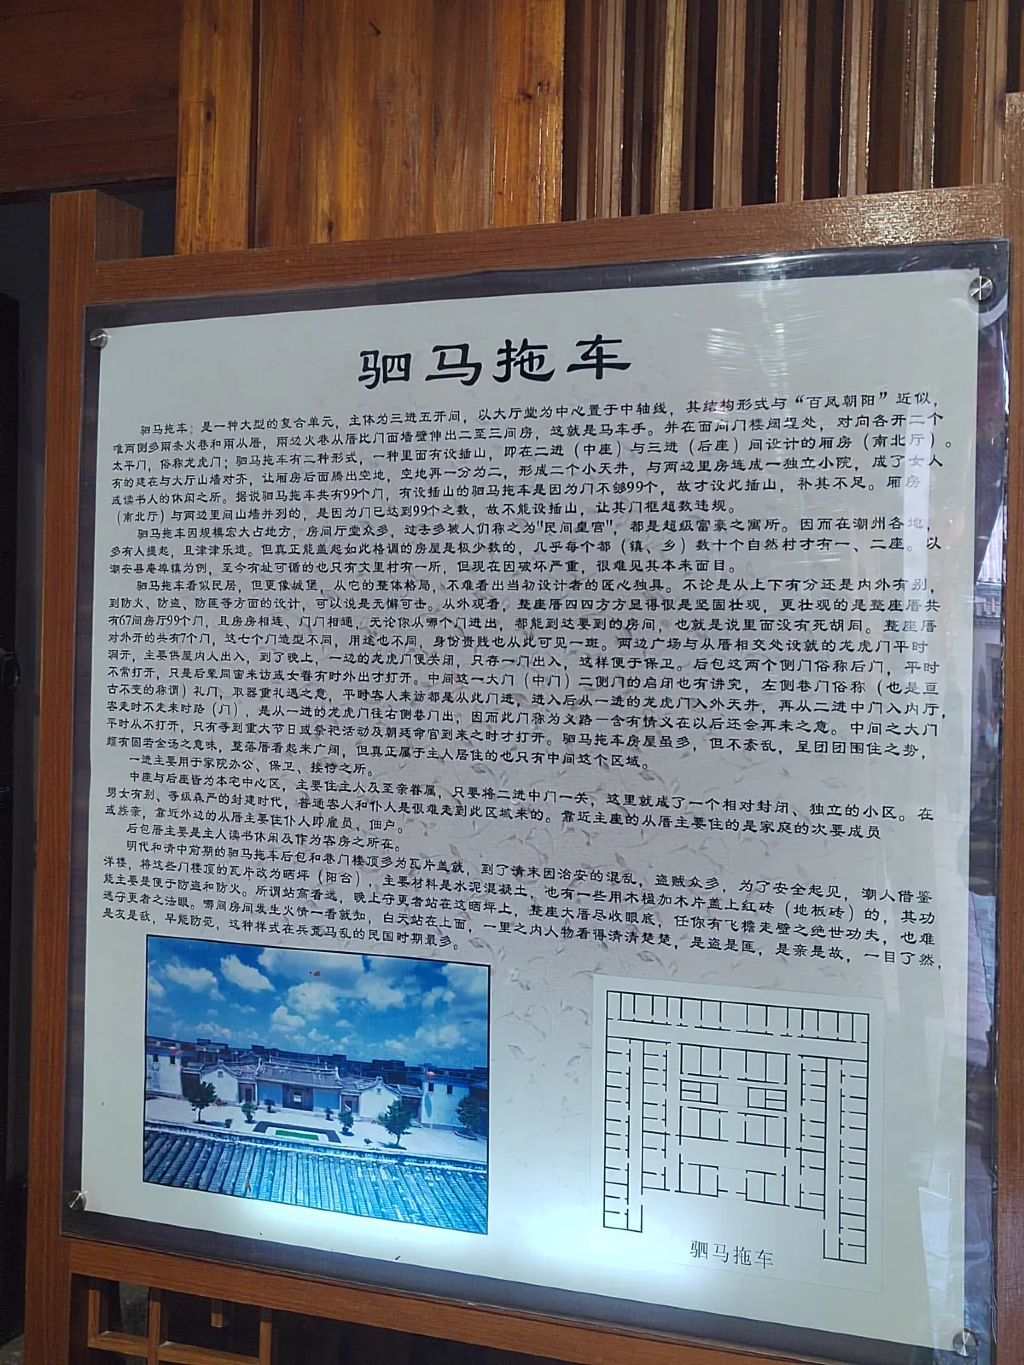 驷马拖车
驷马拖车：是一种大型的复合单元，主体为三进五开间，以大厅堂为中心置于中轴线，其结构形式与“百凤朝阳”近似，
唯两侧多兩条火巷和兩从厝，兩边火巷从厝比门面墙壁伸出二至三间房，这就是马车手。并在面向门楼阔埕处，对向各开二个
太平门，俗称龙虎门；驷马拖车有二种形式，一种里面有设插山，即在二进（中座）与三进（后座）间设计的厢房（南北厅）。
有的建在与大厅山墙对齐，让厢房后面腾出空地，空地再一分为二，形成二个小天井，与两边里房连成一独立小院，成了女人
或读书人的休闲之所。据说驷马拖车共有99个门，有设插山的驷马拖车是因为门不够99个，故才设此插山，补其不足。厢房
（南北厅）与两边里间山墙并列的，是因为门已达到99个之数，故不能设插山，让其门框超数违规。
驷马拖车因规模宏大占地方，房间厅堂众多，过去多被人们称之为"民间皇宫"，都是超级富豪之寓所。因而在潮州各地，
多有人提起，且津津乐道。但真正能盖起如此格调的房屋是极少数的，几乎每个都（镇、乡）数十个自然村才有一、二座。以
潮安县庵埠镇为例，至今有址可循的也只有文里村有一所，但现在因破坏严重，很难见其本来面目。
驷马拖车看似民居，但更像城堡，从它的整体格局，不难看出当初设计者的匠心独具。不论是从上下有分还是内外有别，
到防火、防盗、防匪等方面的设计，可以说是无懈可击。从外观看，整座厝四四方方显得很是坚固壮观，更壮观的是整座厝共
有67间房厅99个门，且房房相连、门门相通，无论你从哪个门进出，都能到达要到的房间，也就是说里面没有死胡同。整座厝
对外开的共有7个门，这七个门造型不同，用途也不同，身份贵贱也从此可见一斑。两边广场与从厝相交处设就的龙虎门平时
洞开，主要供屋内人出入，到了晚上，一边的龙虎门便关闭，只存一门出入，这样便于保卫。后包这两个侧门俗称后门，平时
不常打开，只是后辈同宙来访或女眷有时外出才打开。中间这一大门（中门）二侧门的启闭也有讲究，左侧巷门俗称（也是亘
古不变的称谓）礼门，取器重礼遇之意，平时客人来访都是从此门进，进入后从一进的龙虎门入外天井，再从二进中门入内厅，
客走时不走来时路（门），是从一进的龙虎门往右侧巷门出，因而此门称为义路一含有情义在以后还会再来之意。中间之大门
平时从不打开，只有等到重大节日或祭祀活动及朝廷命官到来之时才打开。驷马拖车房屋虽多，但不紊乱，呈团团围住之势，
颇有固若金汤之意味，整落厝看起来广阔，但真正属于主人居住的也只有中间这个区域。
一进主要用于家院办公、保卫、接待之所。
中座与后座皆为本宅中心区，主要住主人及至亲眷属，只要将二进中门一关，这里就成了一个相对封闭、独立的小区。在
男女有别、等级森严的封建时代，普通客人和仆人是很难走到此区域来的。靠近主座的从厝主要住的是家庭的次要成员
或族亲，靠近外边的从厝主要住仆人即雇员、佃户。
后包厝主要是主人读书休闲及作为客房之所在。
明代和清中前期的驷马拖车后包和巷门楼顶多为瓦片盖就，到了清末因治安的混乱，盗贼众多，为了安全起见，潮人借鉴
洋楼，将这些门楼顶的瓦片改为晒坪（阳台），主要材料是水泥混凝土，也有一些用木楹加木片盖上红砖（地板砖）的，其功
能主要是便于防盗和防火。所谓站高看远，晚上守更者站在这晒坪上，整座大厝尽收眼底，任你有飞檐走壁之绝世功夫，也难
逃守更者之法眼。哪间房间发生火情一看就知，白天站在上面，一里之内人物看得清清楚楚，是盗是匪，是亲是故，一目了然，
是友是敌，早能防范，这种样式在兵荒马乱的民国时期最多。
驷马拖车